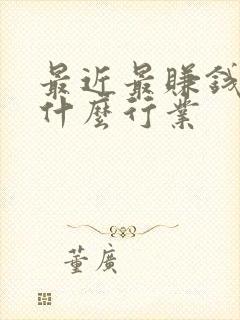 最近最賺錢
什麼行業
董廣